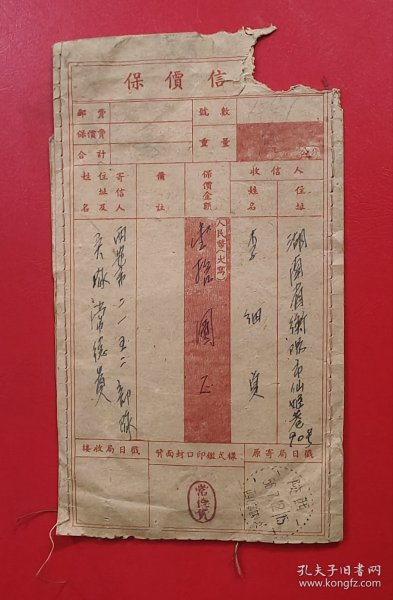 保價信
郵費
號數
保價費
重量
合計
收信人
住址
姓名
保價金額
備註
寄信人
住址及
姓名
湖南省衡陽市仙姬巷90号
李細
人民幣(大寫)
壹拾圓正
西安市二一五二部隊
常德貴
接收局日戳
背面封口印鑑式樣
原寄局日戳
常德貴
陝西
孔夫子旧书网
www.kongfz.com